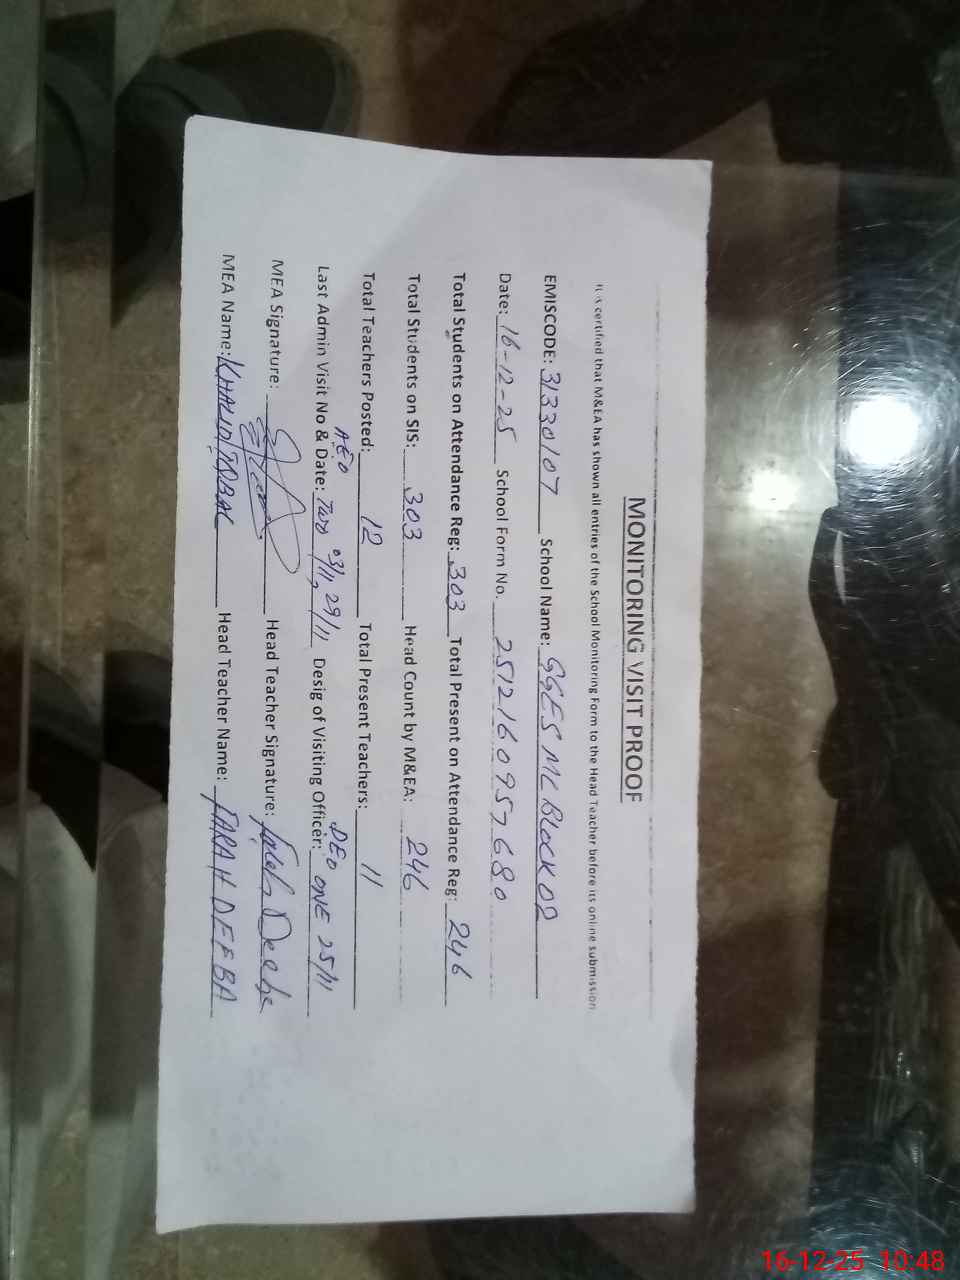 MONITORING VISIT PROOF
It is certified that M&EA has shown all entries of the School Monitoring Form to the Head Teacher before its online submission
EMISCODE: 31330107 School Name: GGES MC BLOCK 02
Date: 16-12-25 School Form No. 2512160957680
Total Students on Attendance Reg: 303 Total Present on Attendance Reg: 246
Total Students on SIS: 303 Head Count by M&EA: 246
Total Teachers Posted: 12 Total Present Teachers: 11
AEO DEO
Last Admin Visit No & Date: Two 03/11, 29/11 Desig of Visiting Officer: ONE 25/11
MEA Signature: Head Teacher Signature: Farah Deeba
MEA Name: KHALID IQBAL Head Teacher Name: FARAH DEEBA
16-12-25 10:48